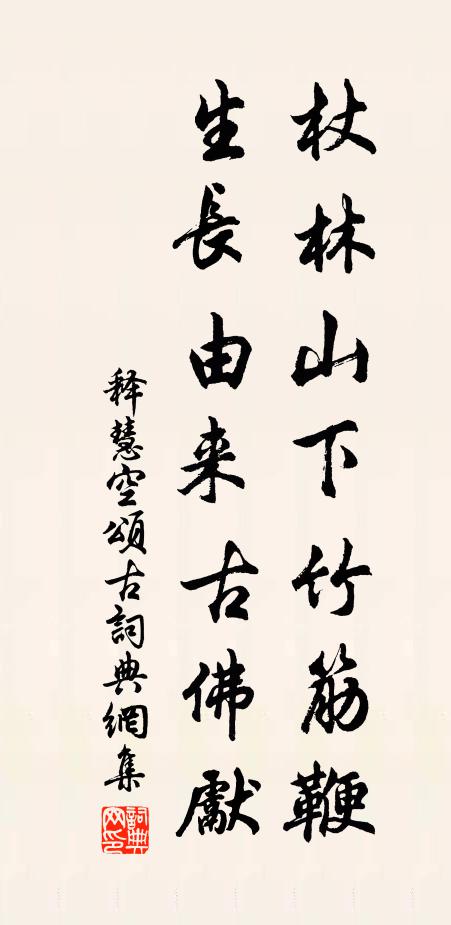 杖林山下竹筋鞭
生長由来古佛獻
释慧空頌古詞典網集
詞典
网印